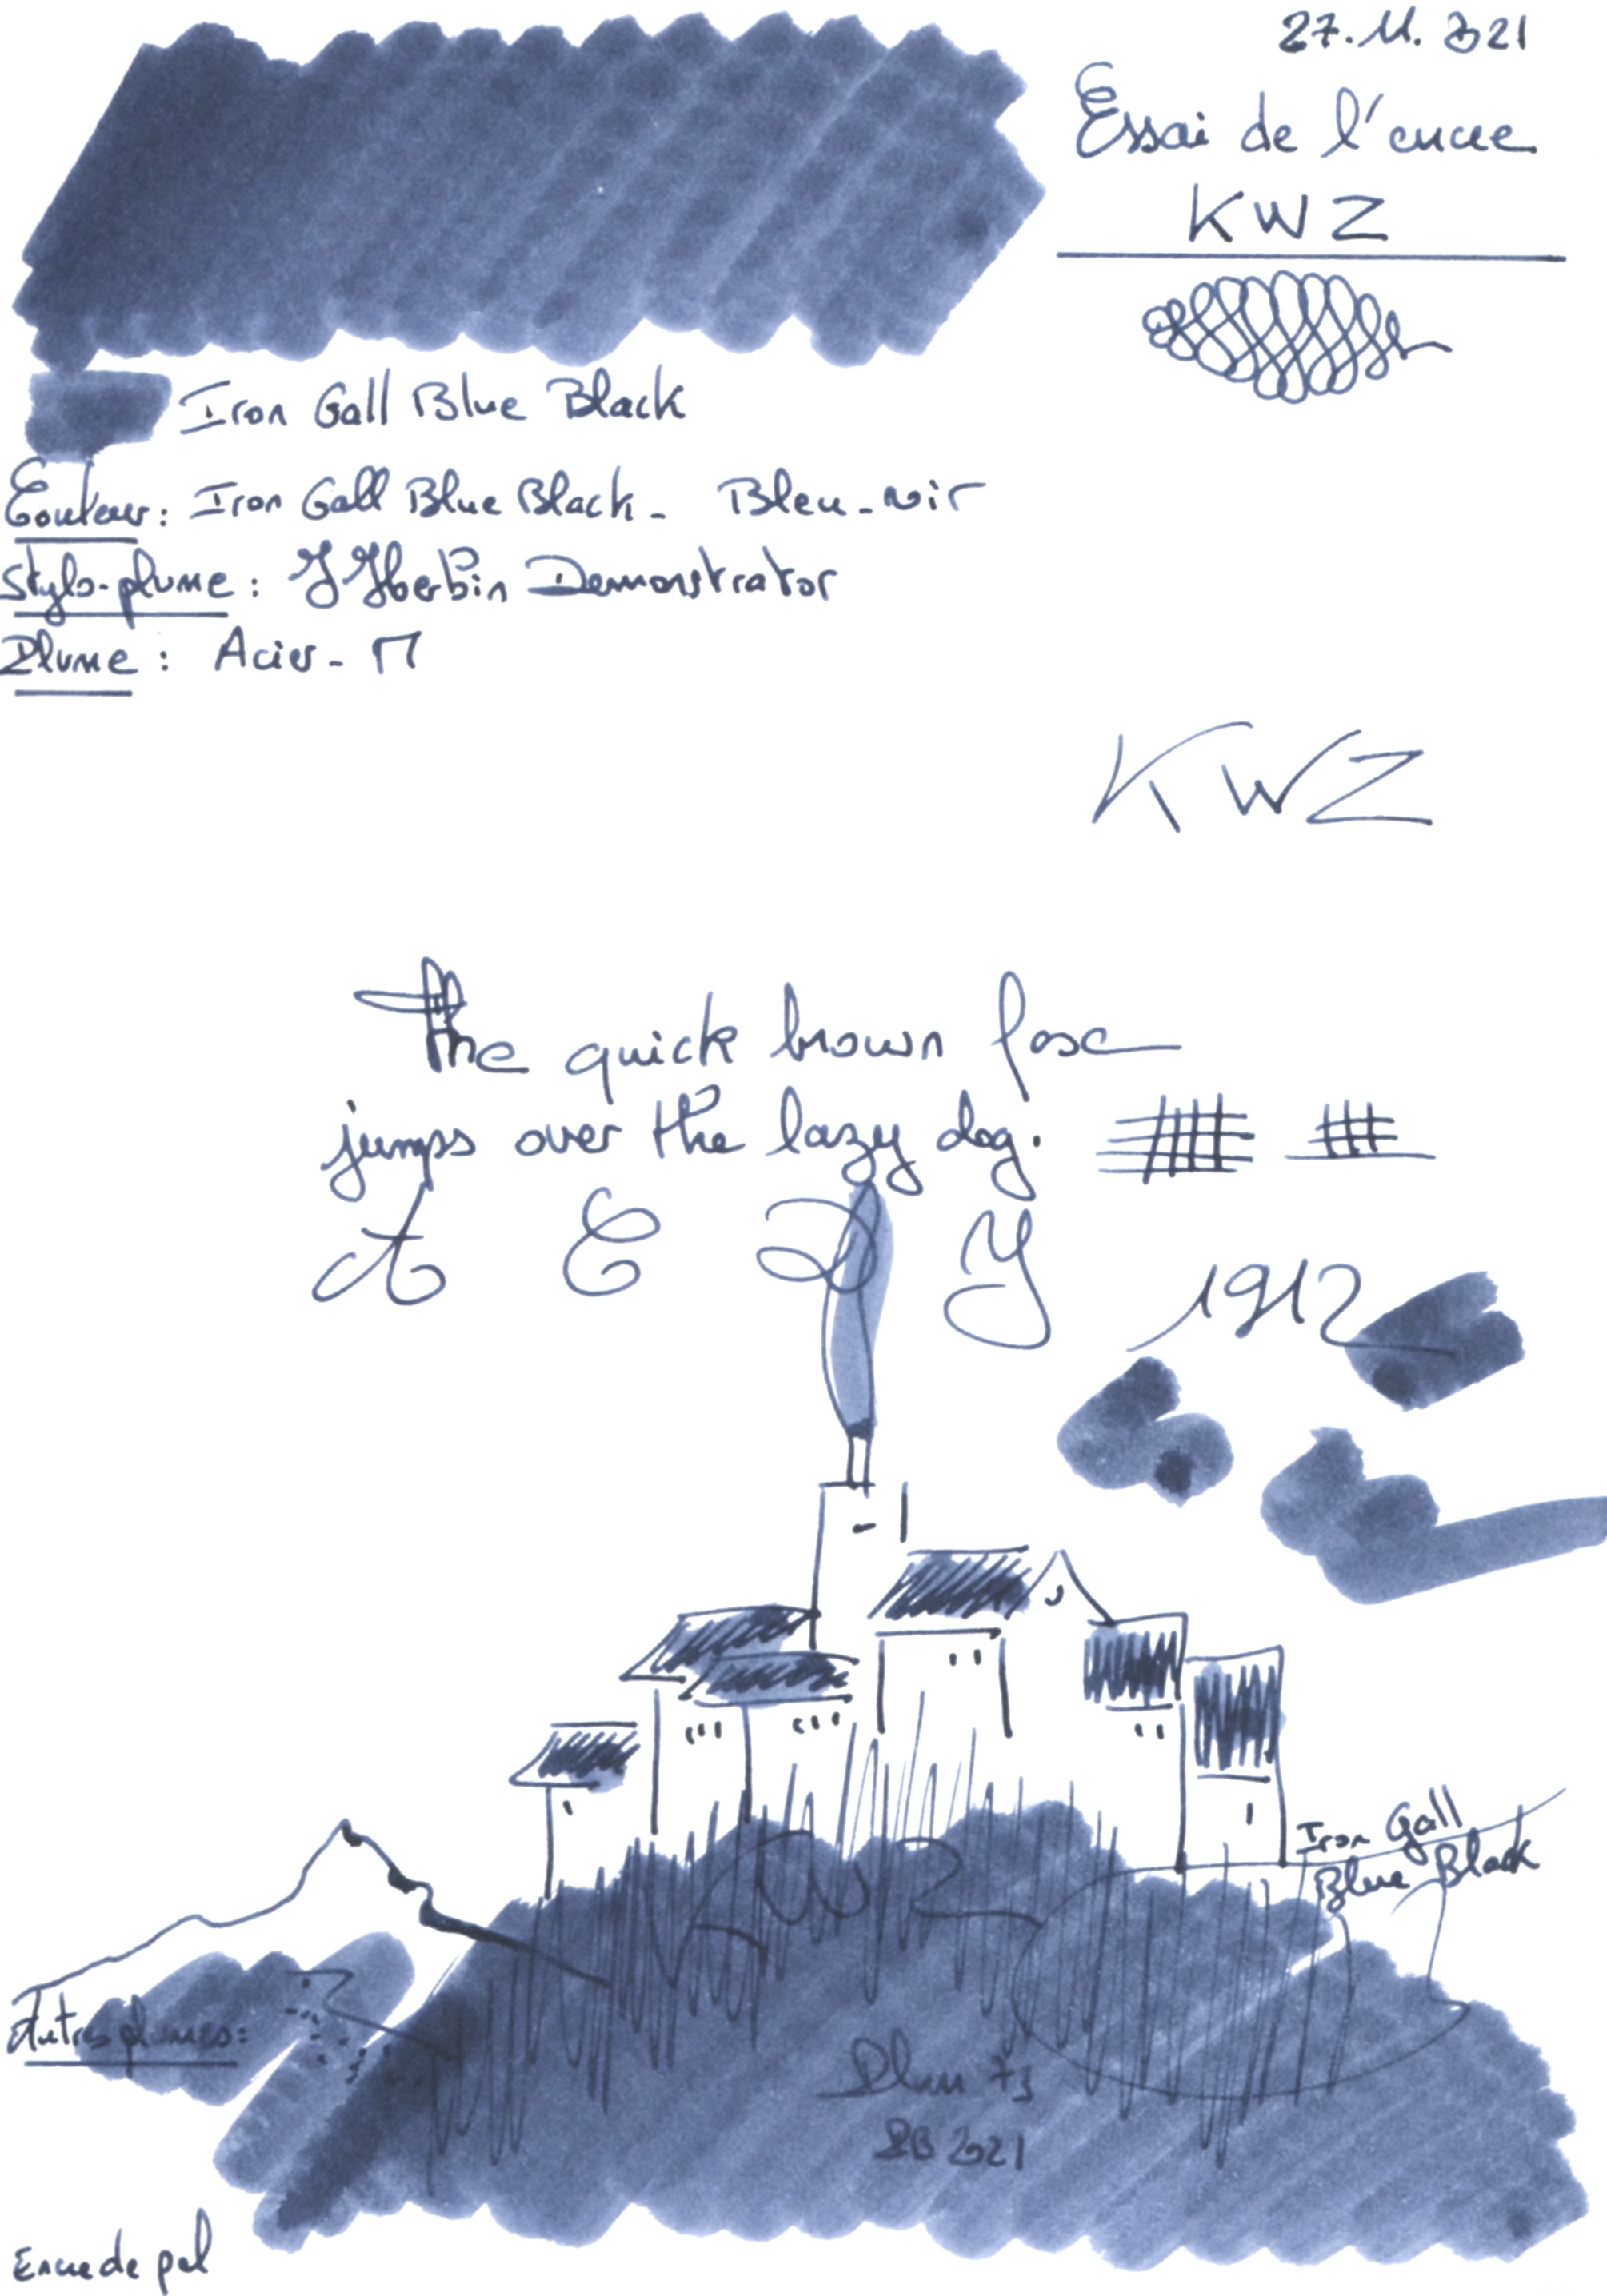 27.11.2021
Essai de l'encre
KWZ
Iron Gall Blue Black
Couleur: Iron Gall Blue Black - Bleu-noir
Stylo-plume: J Herbin Demonstrator
Plume: Acier - M
KWZ
The quick brown fox
jumps over the lazy dog.
A E Q Y
1912
Iron Gall
Blue Black
KWZ
Autres plumes:
Plum 73
BB 2021
Encre de pol